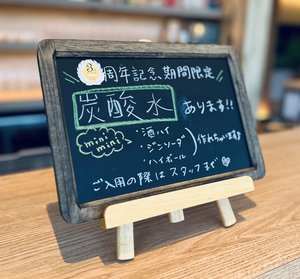 3周年記念期間限定
炭酸水 あります!!
mini mini
・酒ハイ
・ジンソーダ
・ハイボール
作れちゃいます♪
ご入用の際はスタッフまで♡